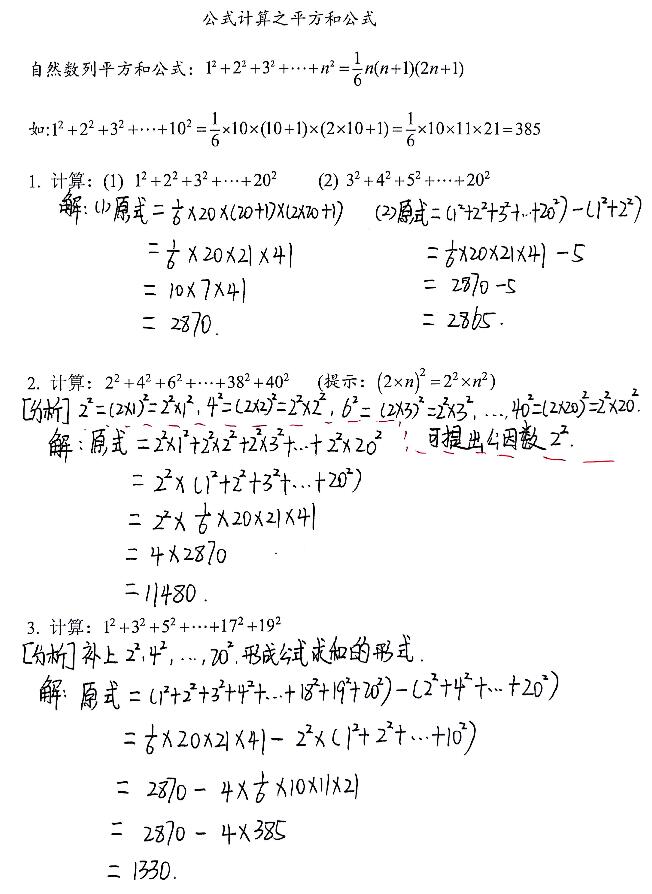 公式计算之平方和公式
自然数列平方和公式：1²+2²+3²+⋯+n²=1/6n(n+1)(2n+1)
如:1²+2²+3²+⋯+10²=1/6×10×(10+1)×(2×10+1)=1/6×10×11×21=385
1. 计算：(1) 1²+2²+3²+⋯+20² (2) 3²+4²+5²+⋯+20²
解：(1)原式=1/6×20×(20+1)×(2×20+1) (2)原式=(1²+2²+3²+…+20²)-(1²+2²)
=1/6×20×21×41 =1/6×20×21×41-5
=10×7×41 =2870-5
=2870. =2865.
2. 计算：2²+4²+6²+⋯+38²+40² (提示：(2×n)²=2²×n²)
[分析] 2²=(2×1)²=2²×1², 4²=(2×2)²=2²×2², 6²=(2×3)²=2²×3², …, 40²=(2×20)²=2²×20².
解：原式=2²×1²+2²×2²+2²×3²+…+2²×20² 可提出公因数2².
=2²×(1²+2²+3²+…+20²)
=2²×1/6×20×21×41
=4×2870
=11480.
3. 计算：1²+3²+5²+⋯+17²+19²
[分析] 补上2²,4²,…,20²,形成公式求和的形式.
解：原式=(1²+2²+3²+4²+…+18²+19²+20²)-(2²+4²+…+20²)
=1/6×20×21×41-2²×(1²+2²+…+10²)
=2870-4×1/6×10×11×21
=2870-4×385
=1330.